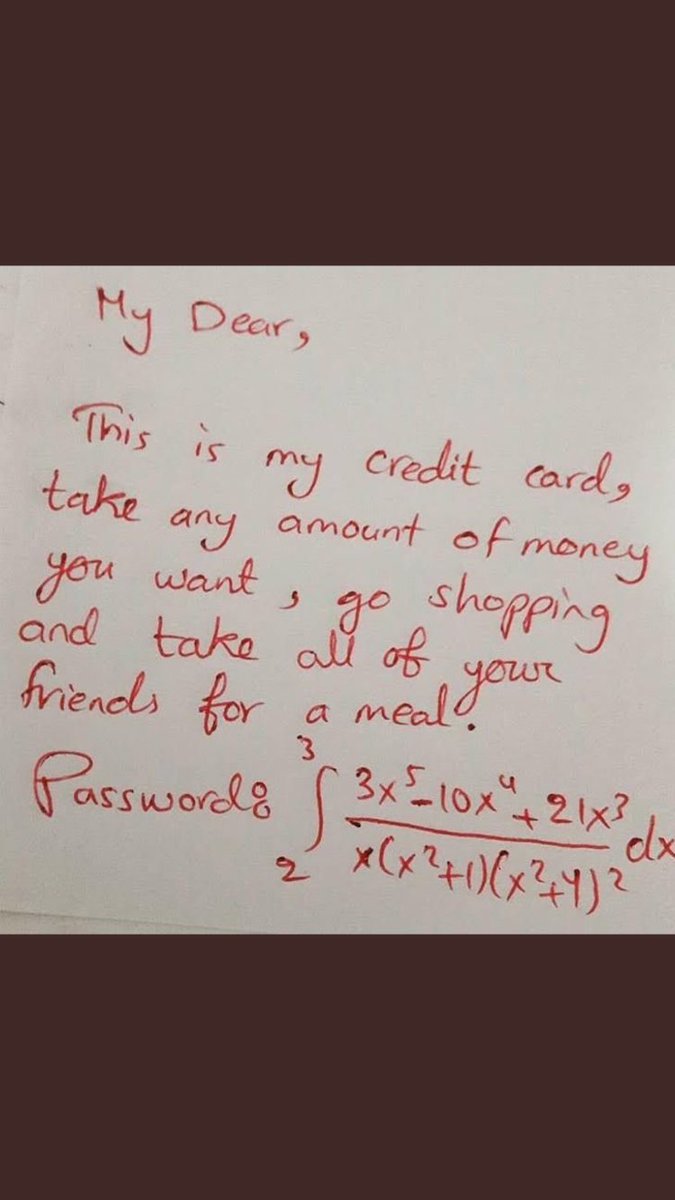 My Dear,
This is my credit card,
take any amount of money
you want, go shopping
and take all of your
friends for a meal.
Password: ∫₂³ (3x⁵-10x⁴+21x³)/(x(x²+1)(x²+4)²) dx